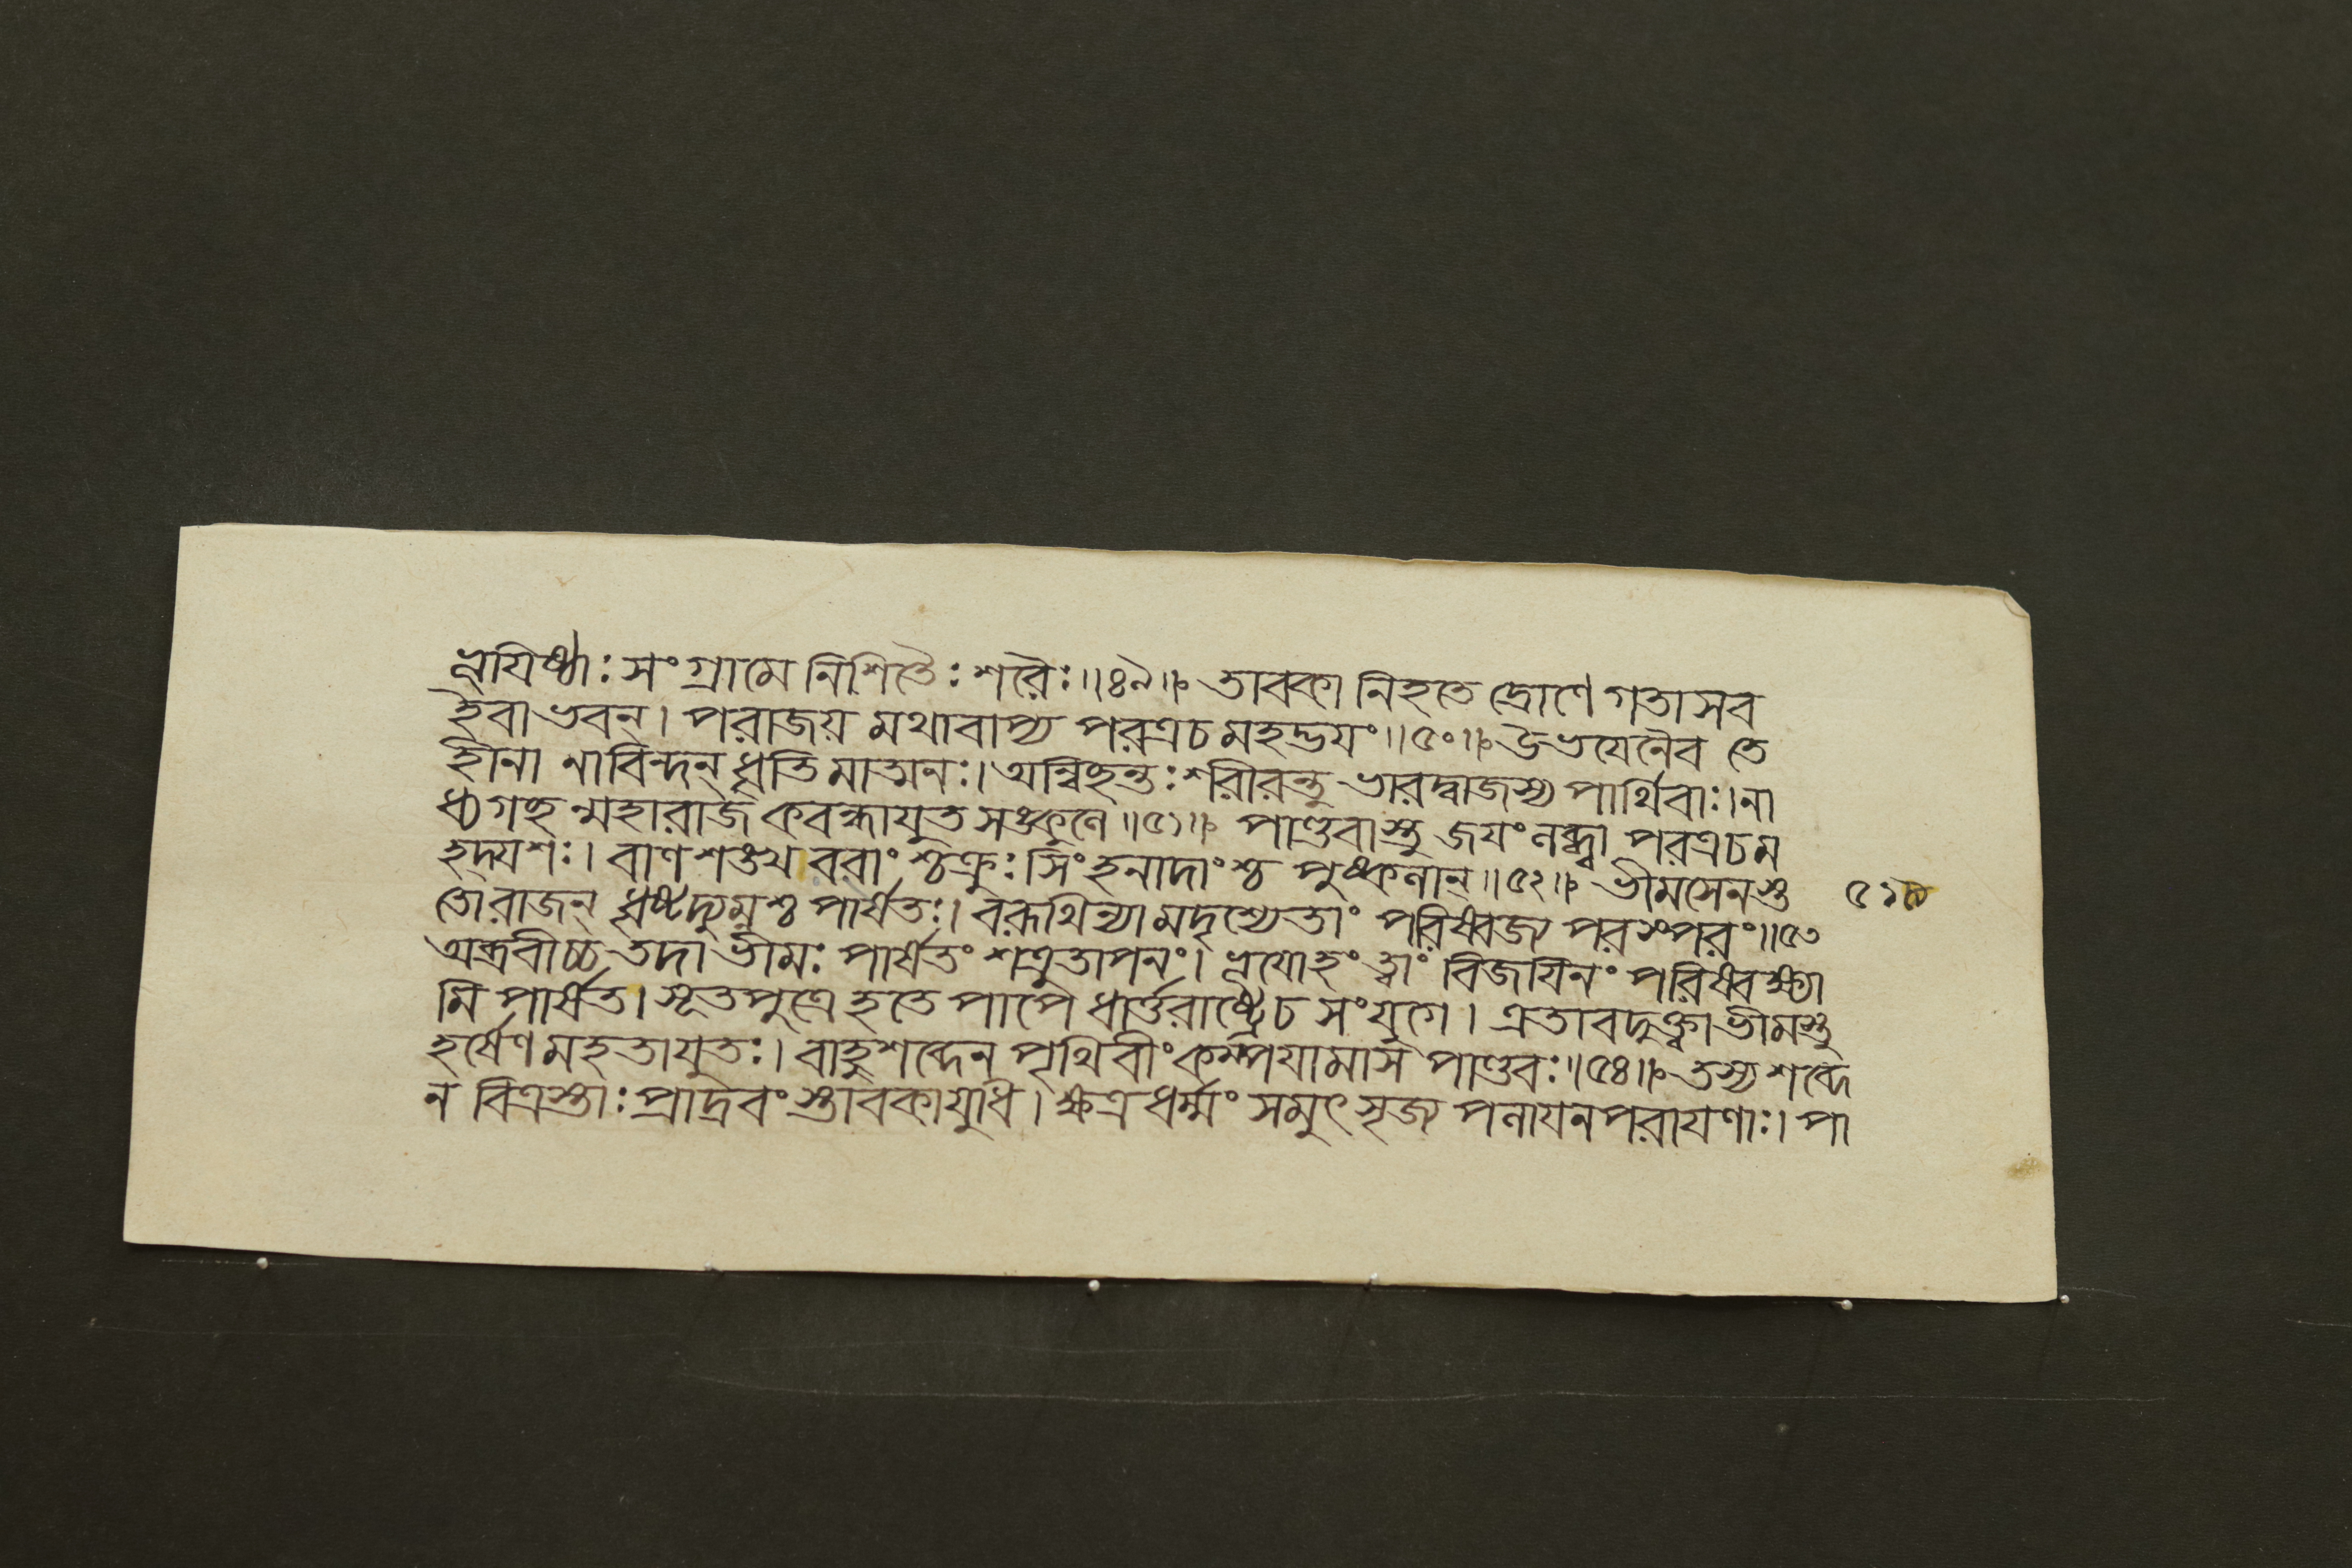 ভূযিষ্ঠাঃ সংগ্রামে নিশিতৈঃ শরৈঃ॥৪৯॥ তাবকা নিহতে দ্রোণে গতাসব
ইবাভবন্। পরাজয় মথাবাপ্য পরত্রচ মহদ্ভযং॥৫০॥ উভযেনৈব তে
হীনা নাবিন্দন্ ধৃতি মাত্মনঃ। অন্বিছন্তঃ শরীরন্তু ভারদ্বাজস্য পার্থিবাঃ। না
ধ্যগছ ন্মহারাজ কবন্ধাযুত সঙ্কুলে॥৫১॥ পাণ্ডবাস্তু জযং লব্ধ্বা পরত্রচম
হদ্যশঃ। বাণ শঙ্খ ববাং শ্চক্রুঃ সিংহনাদাংশ্চ পুষ্কলান্॥৫২॥ ভীমসেনস্তু
তোরাজন্ ধৃষ্টদ্যুম্নশ্চ পার্ষতঃ। বরূথিন্যা মদৃশ্যেতাং পরিষ্বজ্য পরস্পরং॥৫৩
অব্রবীচ্চ তদা ভীমঃ পার্ষতং শত্রুতাপনং। ভূযোহং ত্বাং বিজযিনং পরিষ্বক্ষ্যা
মি পার্ষত। সূতপুত্রে হতে পাপে ধার্ত্তরাষ্ট্রেচ সংযুগে। এতাবদুক্ত্বা ভীমস্তু
হর্ষেণ মহতাযুতঃ। বাহুশব্দেন পৃথিবীং কম্পযামাস পাণ্ডবঃ॥৫৪॥ তস্য শব্দে
ন বিত্রস্তাঃ প্রাদ্রবং স্তাবকাযুধি। ক্ষত্র ধর্ম্মং সমুৎসৃজ্য পলাযনপরাযণাঃ। পা